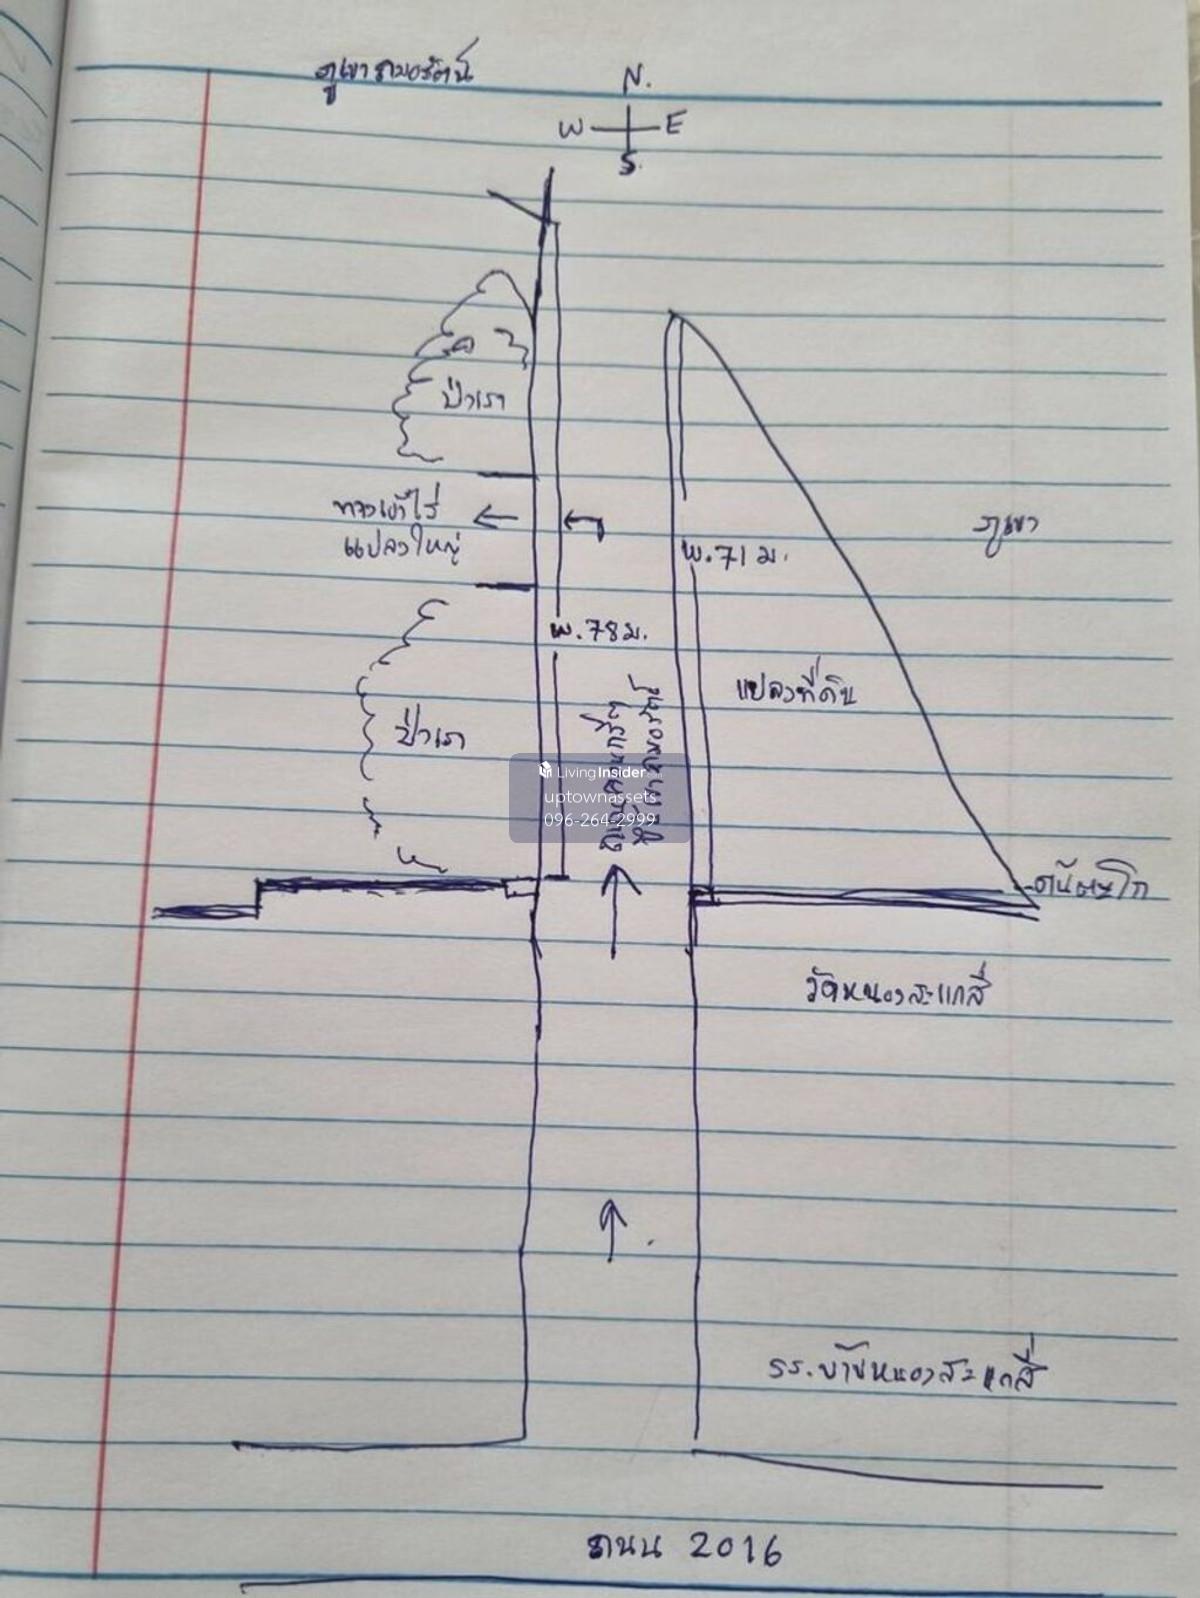 ภูเขาถมอรัตน์
N.
W E
S.
ป่าเรา
ทางเข้าไร่
แปลงใหญ่
ภูเขา
พ.71 ม.
พ.78 ม.
แปลงที่ดิน
ป่าเรา
ถนนคอนกรีต
ถมอรัตน์
LivingInsider
uptownassets
096-264-2999
ต้นตะโก
วัดหนองสะแกสี่
รร.บ้านหนองสะแกสี่
ถนน 2016